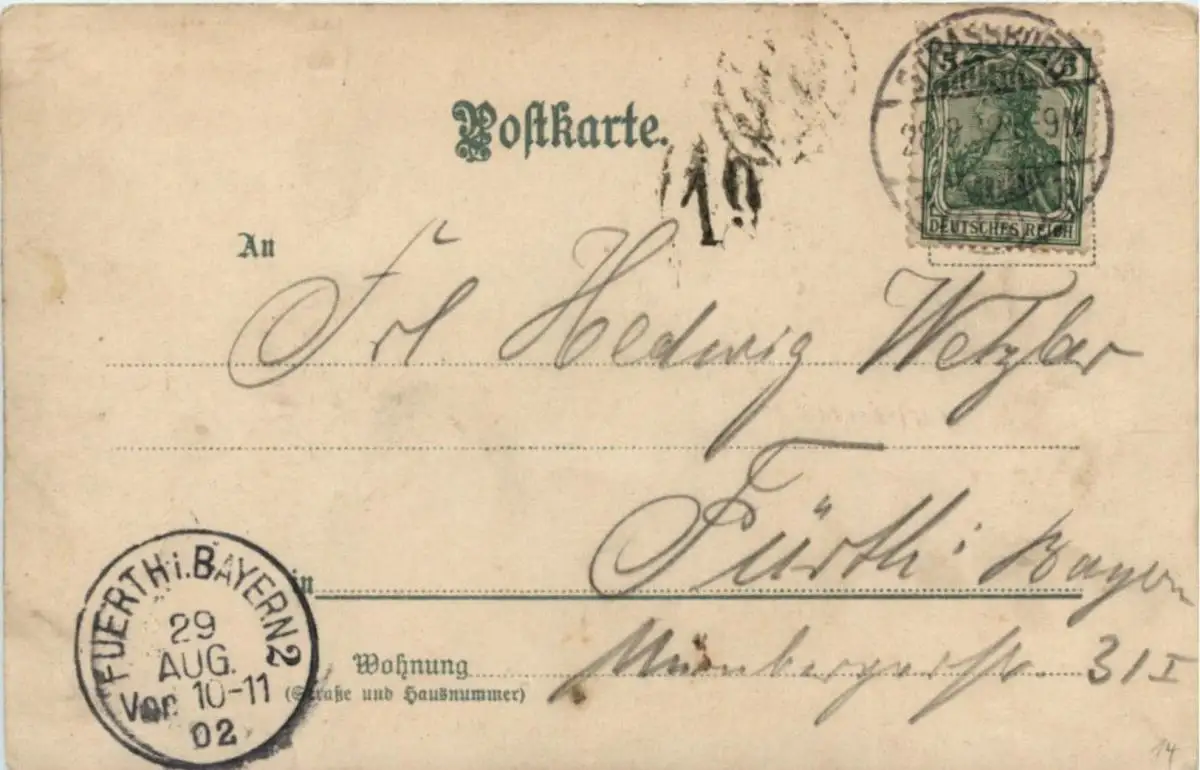 Postkarte.
19
STRASSBURG
5 5
DEUTSCHES REICH
An
Frl Hedwig Wetzlar
in Fürth i Bayern
Wohnung Nürnbergerstr. 31 I
(Straße und Hausnummer)
FUERTH i. BAYERN 2
29
AUG.
Vor 10-11
02
14